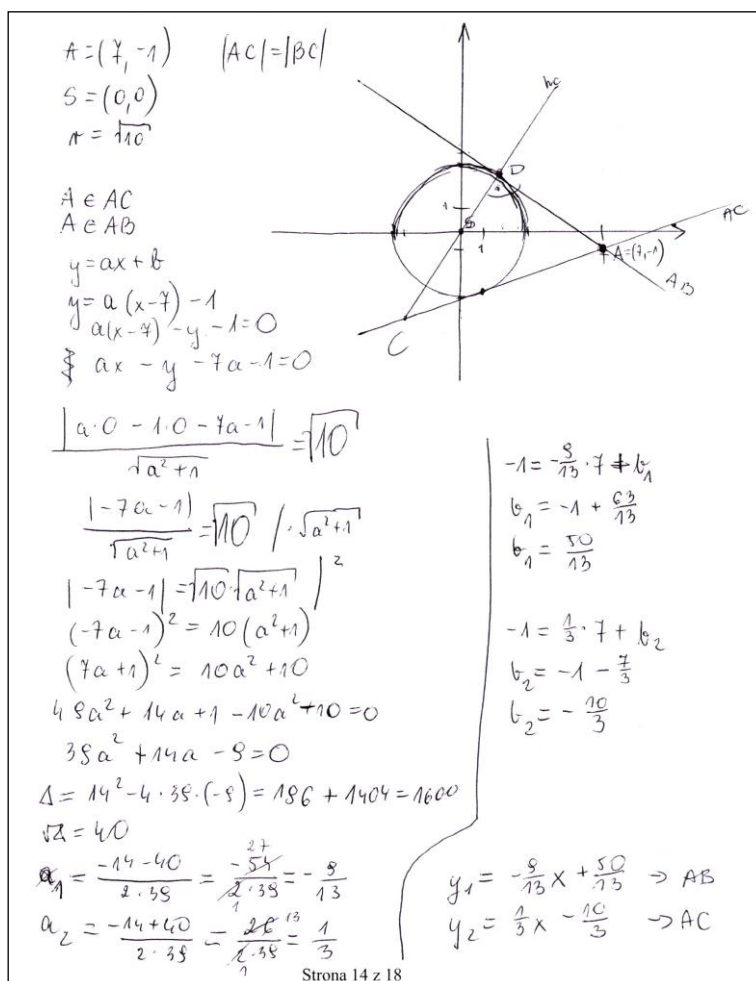 A=(7,-1) |AC|=|BC|
S=(0,0)
r=√10
A∈AC
A∈AB
y=ax+b
y=a(x-7)-1
a(x-7)-y-1=0
ax-y-7a-1=0
hc
D
AC
1
S
1
A=(7,-1)
AB
C
|a·0-1·0-7a-1|/√(a²+1)=√10
|-7a-1|/√(a²+1)=√10 /·√(a²+1)
|-7a-1|=√10·√(a²+1) |²
(-7a-1)²=10(a²+1)
(7a+1)²=10a²+10
49a²+14a+1-10a²+10=0
39a²+14a-9=0
Δ=14²-4·39·(-9)=196+1404=1600
√Δ=40
a₁=(-14-40)/(2·39)=-54/(2·39)=-9/13
27
1
a₂=(-14+40)/(2·39)=26/(2·39)=1/3
13
1
-1=-9/13·7+b₁
b₁=-1+63/13
b₁=50/13
-1=1/3·7+b₂
b₂=-1-7/3
b₂=-10/3
y₁=-9/13x+50/13 → AB
y₂=1/3x-10/3 → AC
Strona 14 z 18